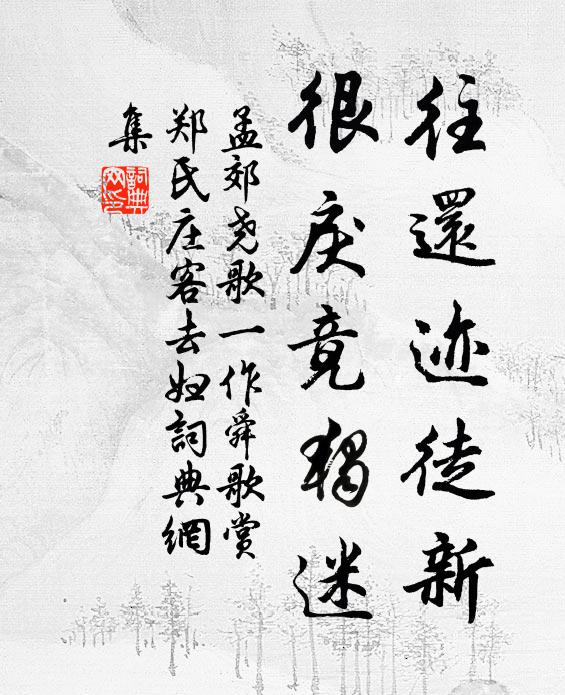 往還迹徒新
很戾竟獨迷
孟郊尧歌一作舜歌賞
郑氏庄客去妇詞典網
集
詞典網印